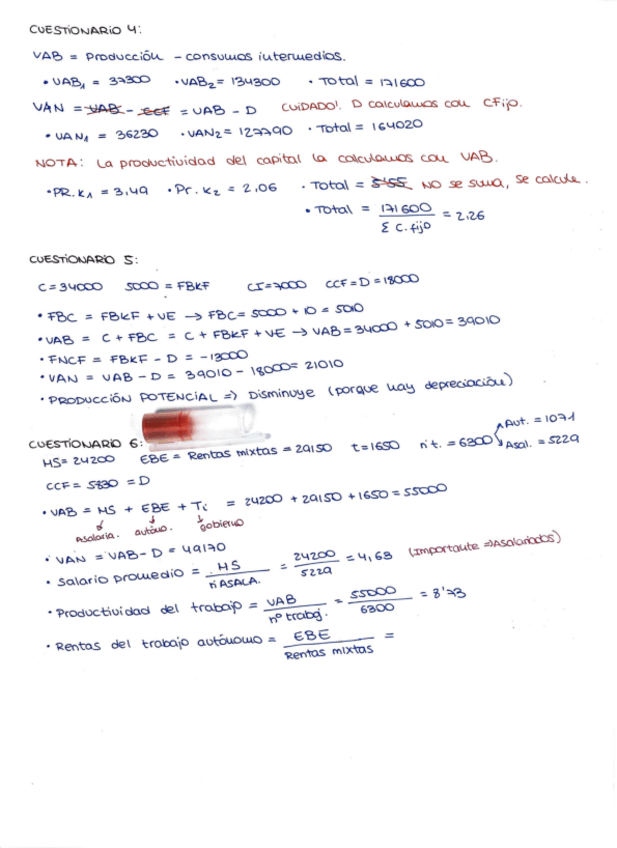 CUESTIONARIO 4:
VAB = Producción - consumos intermedios.
• VAB₁ = 37300 • VAB₂ = 134300 • Total = 171600
VAN = VAB - CCF = VAB - D CUIDADO! D calculamos con CFijo.
• VAN₁ = 36230 • VAN₂ = 127790 • Total = 164020
NOTA: La productividad del capital la calculamos con VAB.
• PR. K₁ = 3,49 • Pr. K₂ = 2,06 • Total = 5'55 NO se suma, se calcula.
• Total = 171600 / Σ C. fijo = 2,26
CUESTIONARIO 5:
C = 34000 5000 = FBKF CI = 7000 CCF = D = 18000
• FBC = FBKF + VE → FBC = 5000 + 10 = 5010
• VAB = C + FBC = C + FBKF + VE → VAB = 34000 + 5010 = 39010
• FNCF = FBKF - D = -13000
• VAN = VAB - D = 39010 - 18000 = 21010
• PRODUCCIÓN POTENCIAL => Disminuye (porque hay depreciación)
CUESTIONARIO 6:
MS = 24200 EBE = Rentas mixtas = 29150 t = 1650 nº t. = 6300 Aut. = 1071
Asal. = 5229
CCF = 5830 = D
• VAB = MS + EBE + Ti = 24200 + 29150 + 1650 = 55000
Asalaria. autóno. gobierno
• VAN = VAB - D = 49170
• Salario promedio = MS / nº ASALA. = 24200 / 5229 = 4,63 (Importante => Asalariados)
• Productividad del trabajo = VAB / nº trabaj. = 55000 / 6300 = 8'73
• Rentas del trabajo autónomo = EBE / Rentas mixtas =